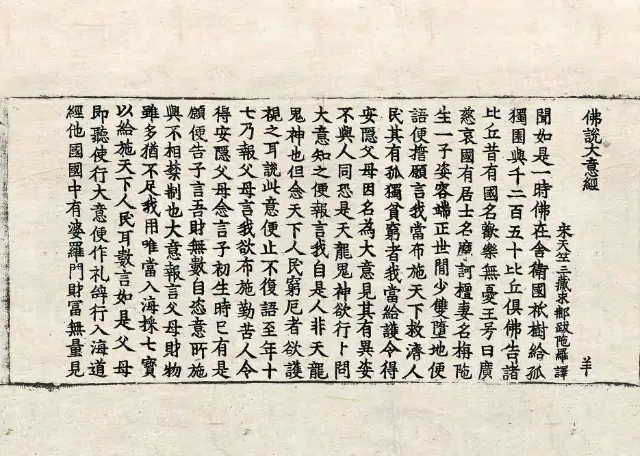 佛說大意經
宋天竺三藏求那跋陁羅譯 羊
聞如是一時佛在舍衛國祇樹給孤
獨園與千二百五十比丘俱佛告諸
比丘昔有國名歡樂無憂王号曰廣
慈哀國有居士名摩訶檀妻名栴陁
生一子姿容端正世間少雙墮地便
語便擔願言我當布施天下救濟人
民其有孤獨貧窮者我當給護令得
安隱父母因名為大意見其有異姿
不與人同恐是天龍鬼神欲行卜問
大意知之便報言我自是人非天龍
鬼神也但念天下人民窮厄者欲護
視之耳說此意便止不復語至年十
七乃報父母言我欲布施勤苦人令
得安隱父母念言子初生時已有是
願便告子言吾財無數自恣意所施
與不相禁制也大意報言父母財物
雖多猶不足我用唯當入海採七寶
以給施天下人民耳數言如是父母
即聽使行大意便作礼辝行入海道
經他國國中有婆羅門財冨無量見